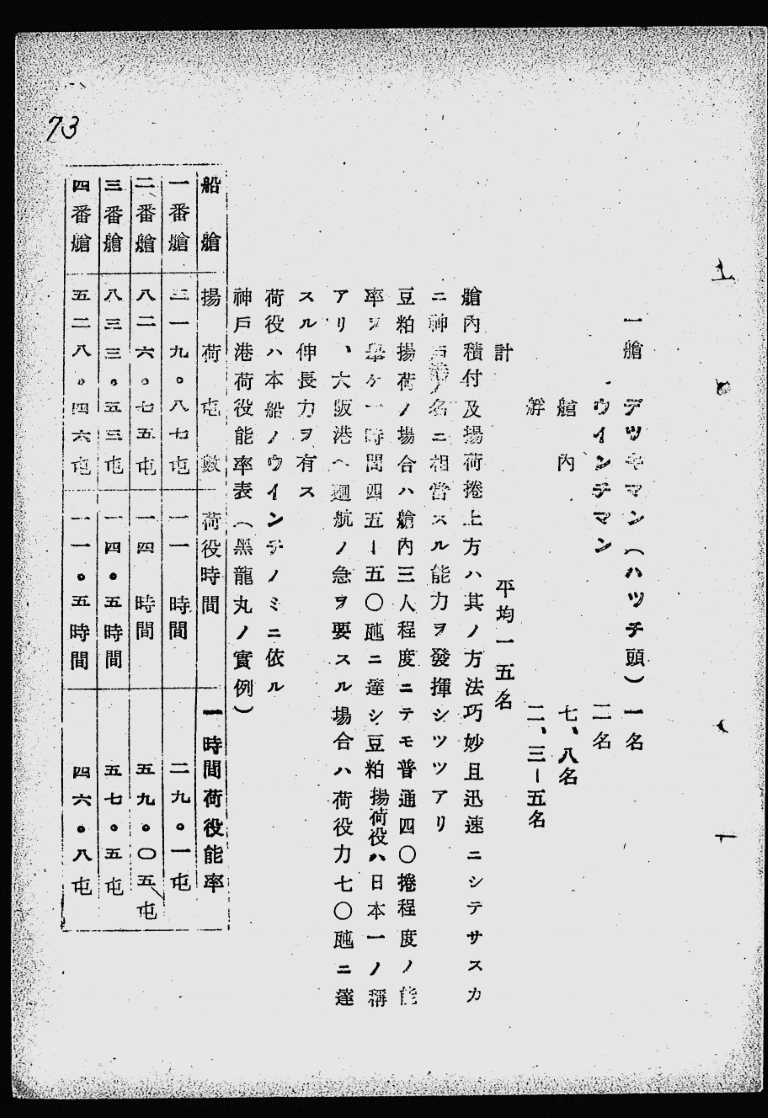 73
一艙 デツキマン(ハツチ頭) 一名
ウインチマン 二名
艙内 七、八名
艀 二、三ー五名
計 平均一五名
艙内積付及揚荷捲上方ハ其ノ方法巧妙且迅速ニシテサスカ
ニ神戸港ノ名ニ相當スル能力ヲ發揮シツツアリ
豆粕揚荷ノ場合ハ艙内三人程度ニテモ普通四〇捲程度ノ能
率ヲ擧ケ一時間四五ー五〇瓲ニ達シ豆粕揚荷役ハ日本一ノ稱
アリ、大阪港ヘ廻航ノ急ヲ要スル場合ハ荷役力七〇瓲ニ達
スル伸長力ヲ有ス
荷役ハ本船ノウインチノミニ依ル
神戸港荷役能率表(黑龍丸ノ實例)
船艙 揚荷屯數 荷役時間 一時間荷役能率
一番艙 三一九。八七屯 一一時間 二九。一屯
二番艙 八二六。七五屯 一四時間 五九。〇五屯
三番艙 八三三。五三屯 一四。五時間 五七。五屯
四番艙 五二八。四六屯 一一。五時間 四六。八屯